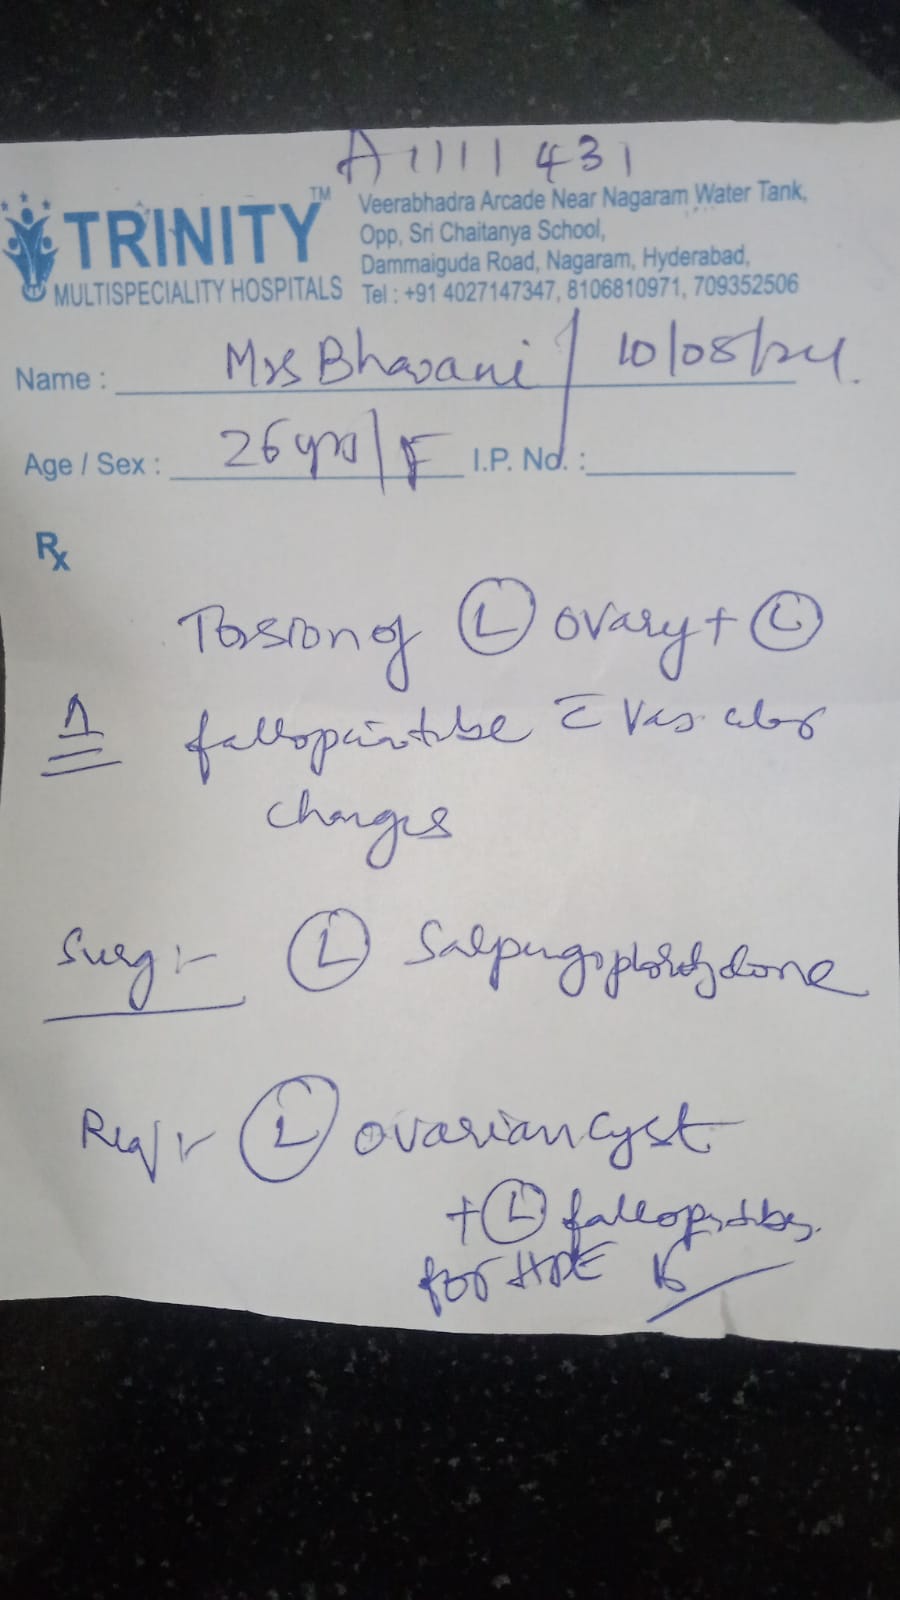 A11111431
TRINITY™
MULTISPECIALITY HOSPITALS
Veerabhadra Arcade Near Nagaram Water Tank,
Opp, Sri Chaitanya School,
Dammaiguda Road, Nagaram, Hyderabad,
Tel : +91 4027147347, 8106810971, 709352506
Name : Mrs Bhavani / 10/08/24.
Age / Sex : 26 yrs/F I.P. No. :
Rx
Torsion of (L) ovary + (L)
fallopian tube c̄ Vascular
changes
Surg :- (L) done
Req :- (L) ovarian cyst
+ (L) fallopian tube
for HPE